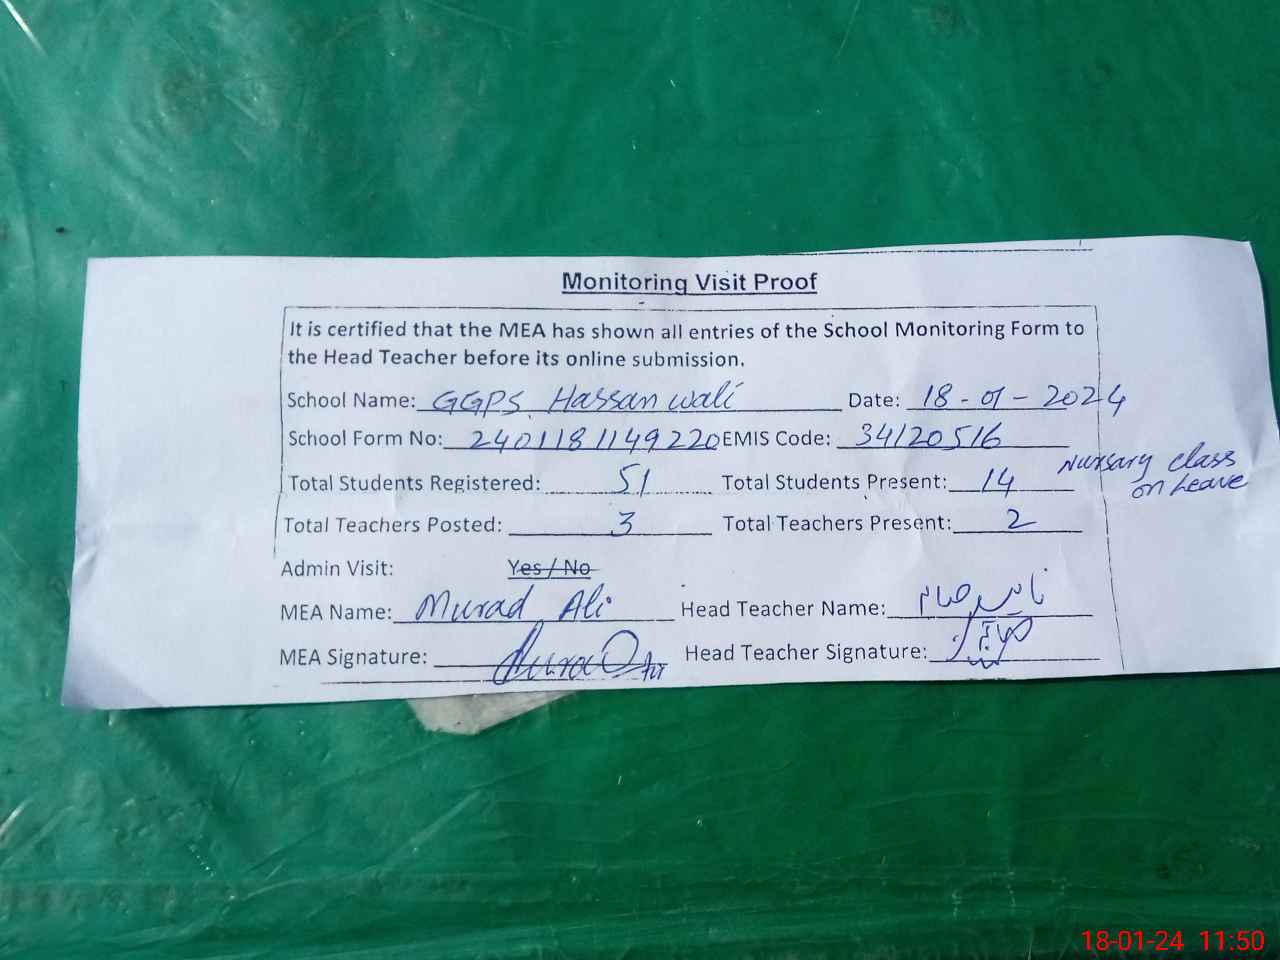 Monitoring Visit Proof
It is certified that the MEA has shown all entries of the School Monitoring Form to
the Head Teacher before its online submission.
School Name: GGPS Hassan wali Date: 18-01-2024
School Form No: 2401181149220 EMIS Code: 34120516
Total Students Registered: 51 Total Students Present: 14 Nursary class
on Leave
Total Teachers Posted: 3 Total Teachers Present: 2
Admin Visit: Yes / No
MEA Name: Murad Ali Head Teacher Name:
MEA Signature: Head Teacher Signature:
18-01-24 11:50